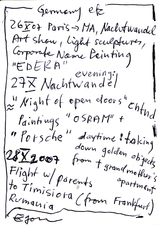 Germany etc
26X07 Paris → MA, Nachtwandel
Art show, Light sculptures,
Corporate Name Painting
"EDEKA"
evening:
27X Nachtwandel
"Night of open doors"
Paintings "OSRAM" +
"Porsche" daytime: taking
down golden objects
from + grandmother's
apartment.
28X2007
Flight w/ parents
to Timisiora (from Frankfurt)
Rumania